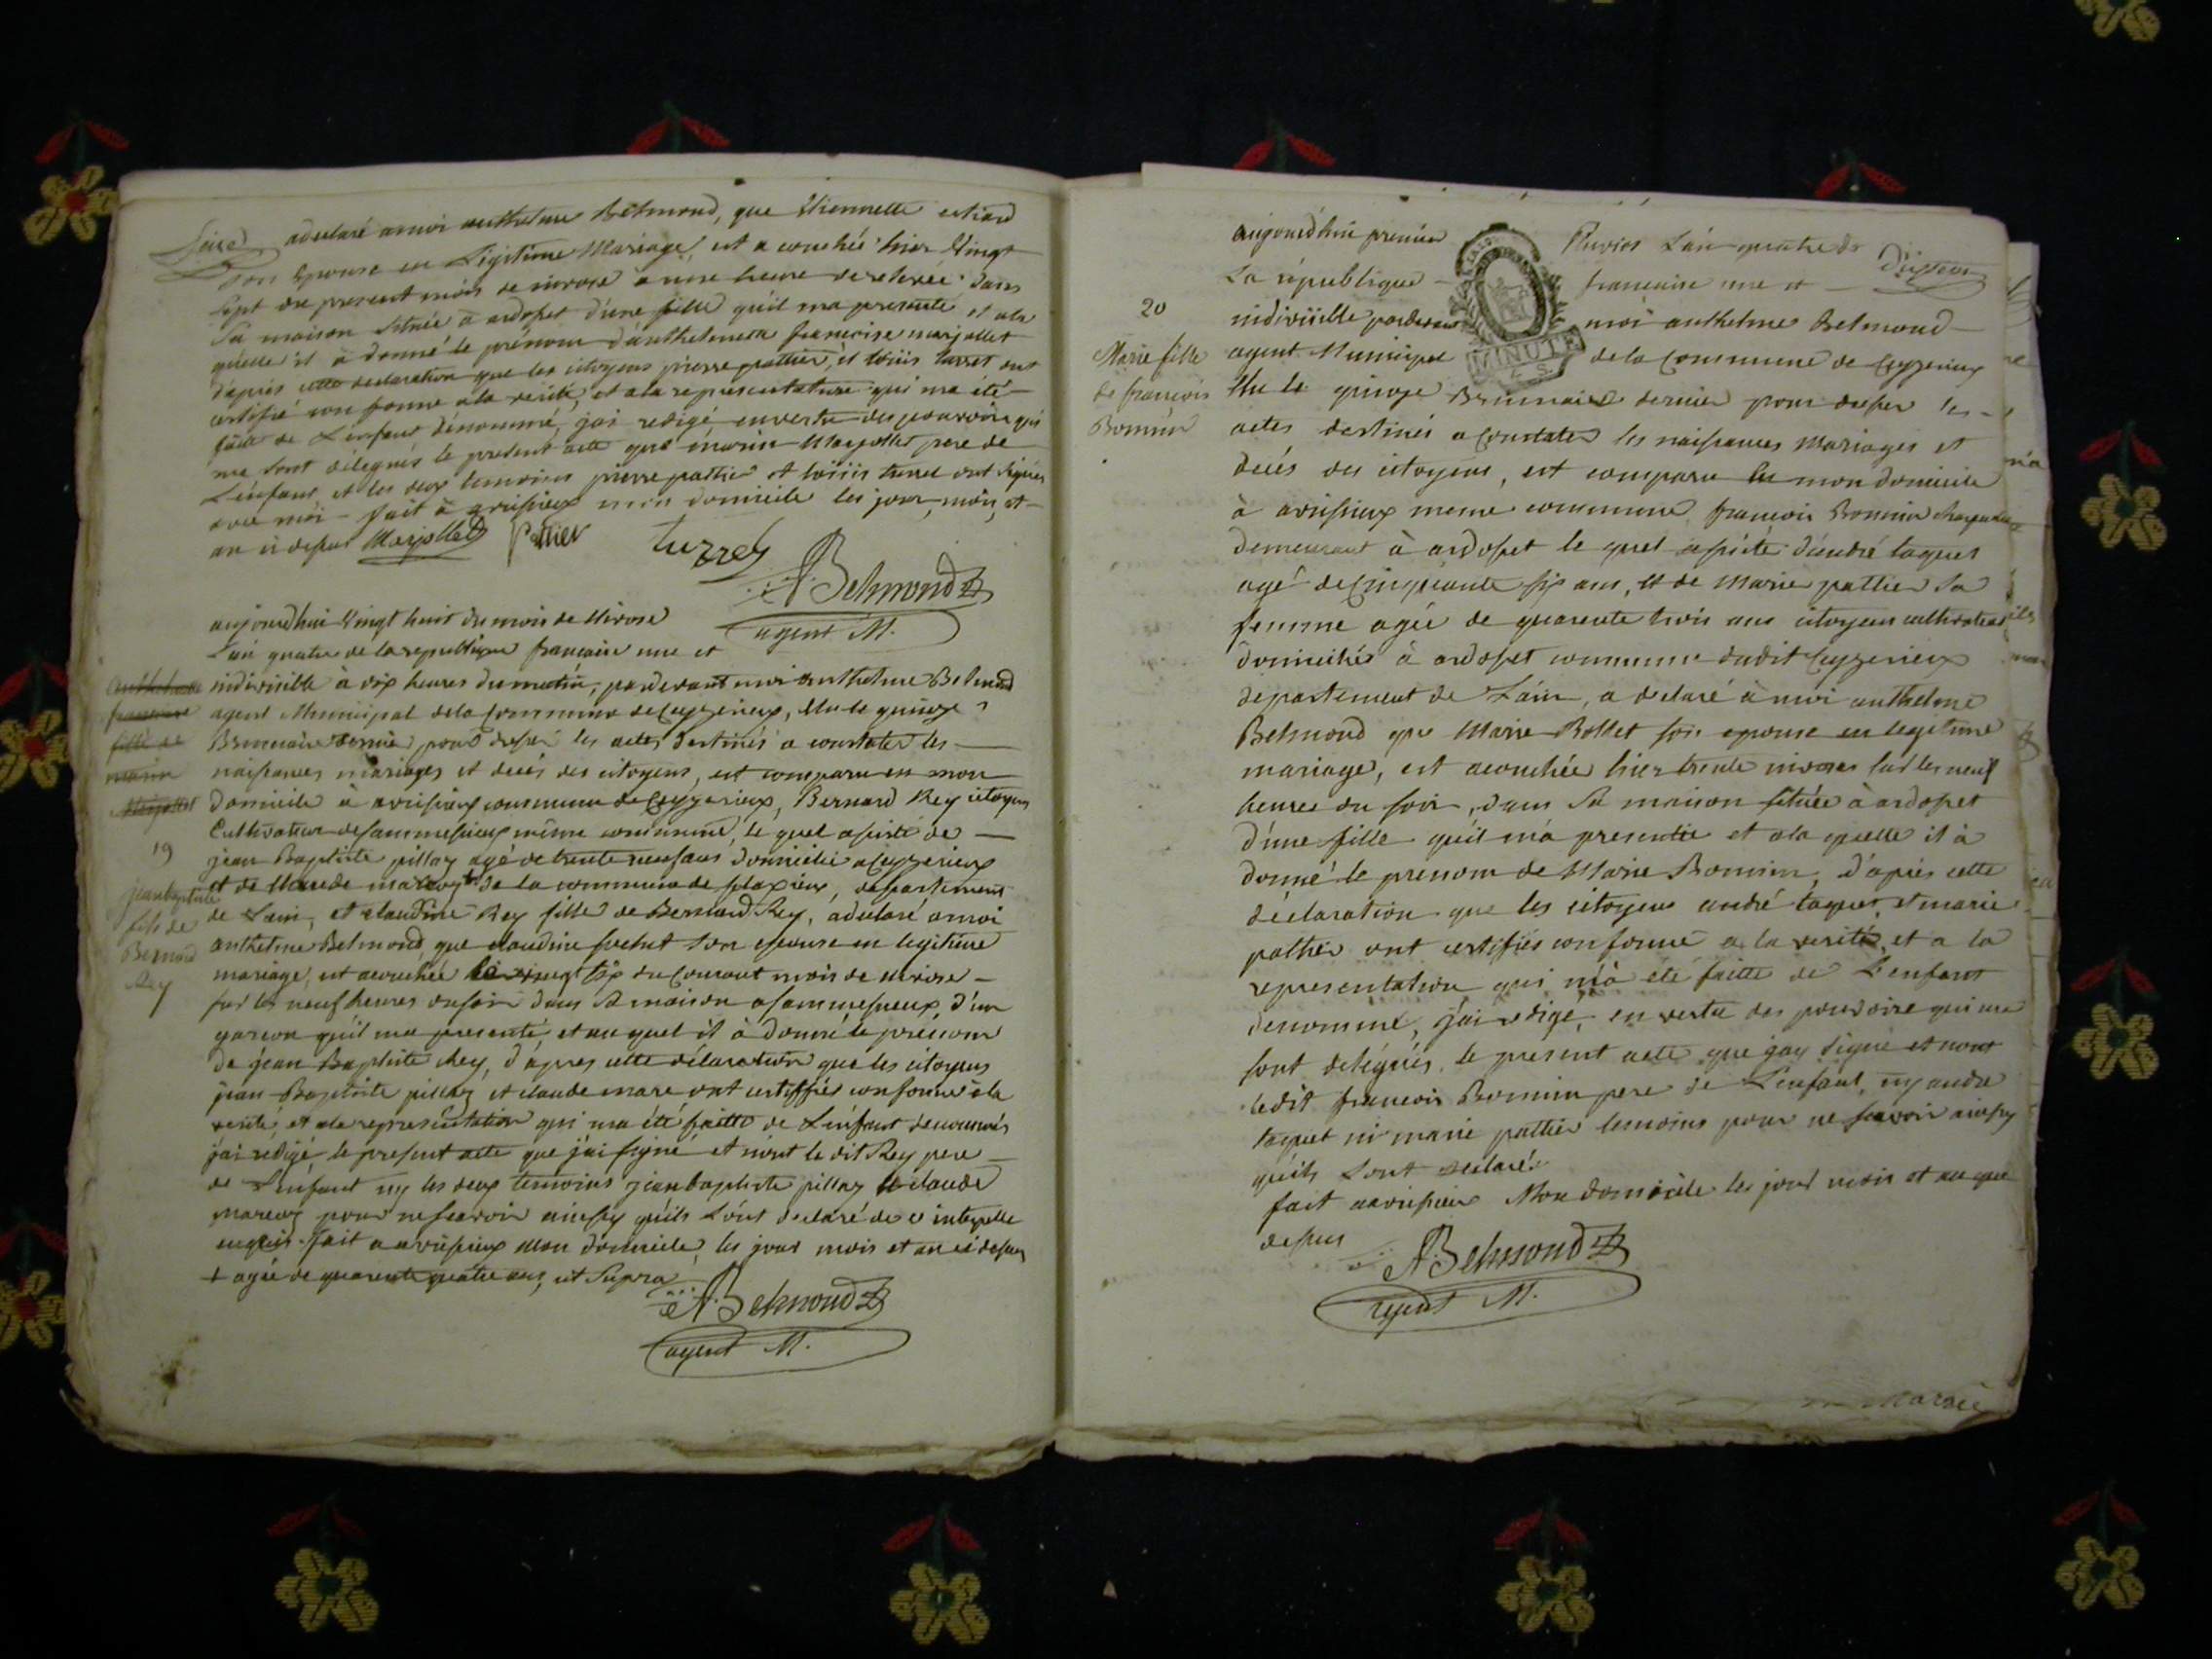 Seize
a declaré a moi anthelme Belmond, que Etiennette
son Epouse en Légitime Mariage, est accouchée hier Vingt
sept du present mois de nivose a une heure de relevée dans
Sa maison Située à ardosset d'une fille qu'il ma presenté et a la
quelle il à donné le prénom d'anthelmette francoise marjollet
d'après cette declaration que les citoyens pierre pattier, et loüis turret ont
certifié conforme a la verité, et a la representature qui ma été
faite de L'enfant dénommé, jai redigé en vertu des pouvoirs qui
me sont délégués le present acte que marin Marjollet pere de
L'enfant et les deux temoins pierre pattier et loüis turret ont Signés
avec moi fait à avrissieux mon domicile les jour, mois, et
an ci dessus Marjollet pattier turrel
ABelmond
agent M.
aujourdhui Vingt huit du mois de Nivose
L'an quatre de la republique francaise une et
indivisible à dix heures du matin, pardevant moi anthelme Belmond
agent Municipal de la Commune de Ceyzerieux, Elu le quinze
Brumaire dernier pour dresser les actes destinés a constater les
naissances mariages et decès des citoyens, est comparu en mon
domicile à avrissieux commune de Ceyzerieux, Bernard Rey citoyen
Cultivateur de sammessieux même commune, le quel assisté de
jean Baptiste pillay agé de trente neuf ans domicilié a Ceyzerieux
et de Claude de la commune de flaxieux, departement
de Lain, et claudine Rey fille de Bernard Rey, a declaré a moi
anthelme Belmond, que claudine son epouse en legitime
mariage, est acouchée le vingt six du Courant mois de nivose
sur les neuf heures du soir dans sa maison a sammessieux, d'un
garcon qu'il ma presenté, et au quel il à donné le prenom
de jean Baptiste Rey, d'apres cette déclaration que les citoyens
jean Baptiste pillay et claude mare ont certiffiés conforme à la
verité, et a la representation qui ma été faitte de L'enfant denommés
j'ai redigé le present acte que j'ai signé et n'ont le dit Rey pere
de L'enfant ny les deux temoins jean baptiste pillay et claude
pour ne scavoir ainsy qu'ils L'ont declaré de ce interpellé
enquis. fait a avrissieux mon domicile, les jour mois et an ci dessus
+ agée de quarente quatre ans, ut Supra
ABelmond
agent M.
anthelmette
francoise
fille de
marin
Marjollet
19
jean baptiste
fils de
Bernard
Rey
aujourd'hui premier Pluvios L'an quatre de
La république francaise une et
indivisible pardevant moi anthelme Belmond
agent Municipal de la Commune de Ceyzerieux
MINUTE
Elu le quinze Brumaire dernier pour dresser les
actes destinés a Constater les naissances Mariages et
decés des citoyens, est comparu en mon domicile
à avrissieux meme commune françois Bonnin
demeurant à ardosset le quel assisté d'andré taquet
agé de Cinquante six ans, et de Marie pattier Sa
femme agée de quarente trois ans citoyens cultivateurs
domiciliés à ardosset commune dudit Ceyzerieux
departement de L'ain, a declaré à moi anthelme
Belmond que Marie Bollet son epouse en legitime
mariage, est acouchée hier trente nivose sur les neuf
heures du soir, dans Sa maison située à ardosset
d'une fille qu'il m'a presentée et a la quelle il à
donné le prenom de Marie Bonnin, d'après cette
déclaration que les citoyens andré taquet et marie
pattier ont certifiés conforme a la verité, et a la
representation qui m'à été faitte de L'enfant
denommé, j'ai redigé, en vertu des pouvoirs qui me
sont delégués, le present acte que jay Signé et n'ont
ledit francois Bonnin pere de L'enfant, ny andré
taquet ni marie pattier temoins pour ne scavoir ainsy
qu'ils Lont declaré
fait a avrissieux Mon domicile les jour mois et an que
dessus
ABelmond
agent M.
20
Marie fille
de françois
Bonnin